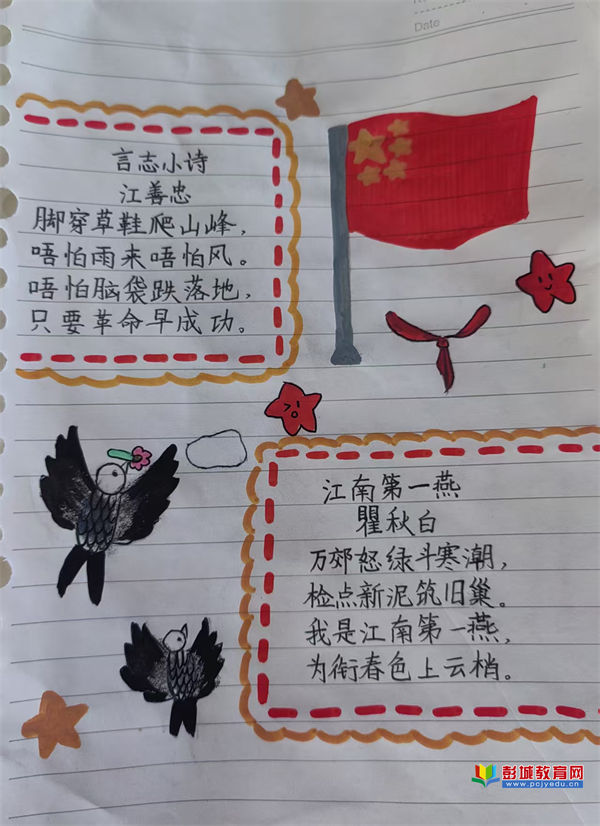 Date
言志小诗
江善忠
脚穿草鞋爬山峰，
唔怕雨来唔怕风。
唔怕脑袋跌落地，
只要革命早成功。
江南第一燕
瞿秋白
万郊怒绿斗寒潮，
检点新泥筑旧巢。
我是江南第一燕，
为衔春色上云梢。
彭城教育网
www.pcjyedu.cn